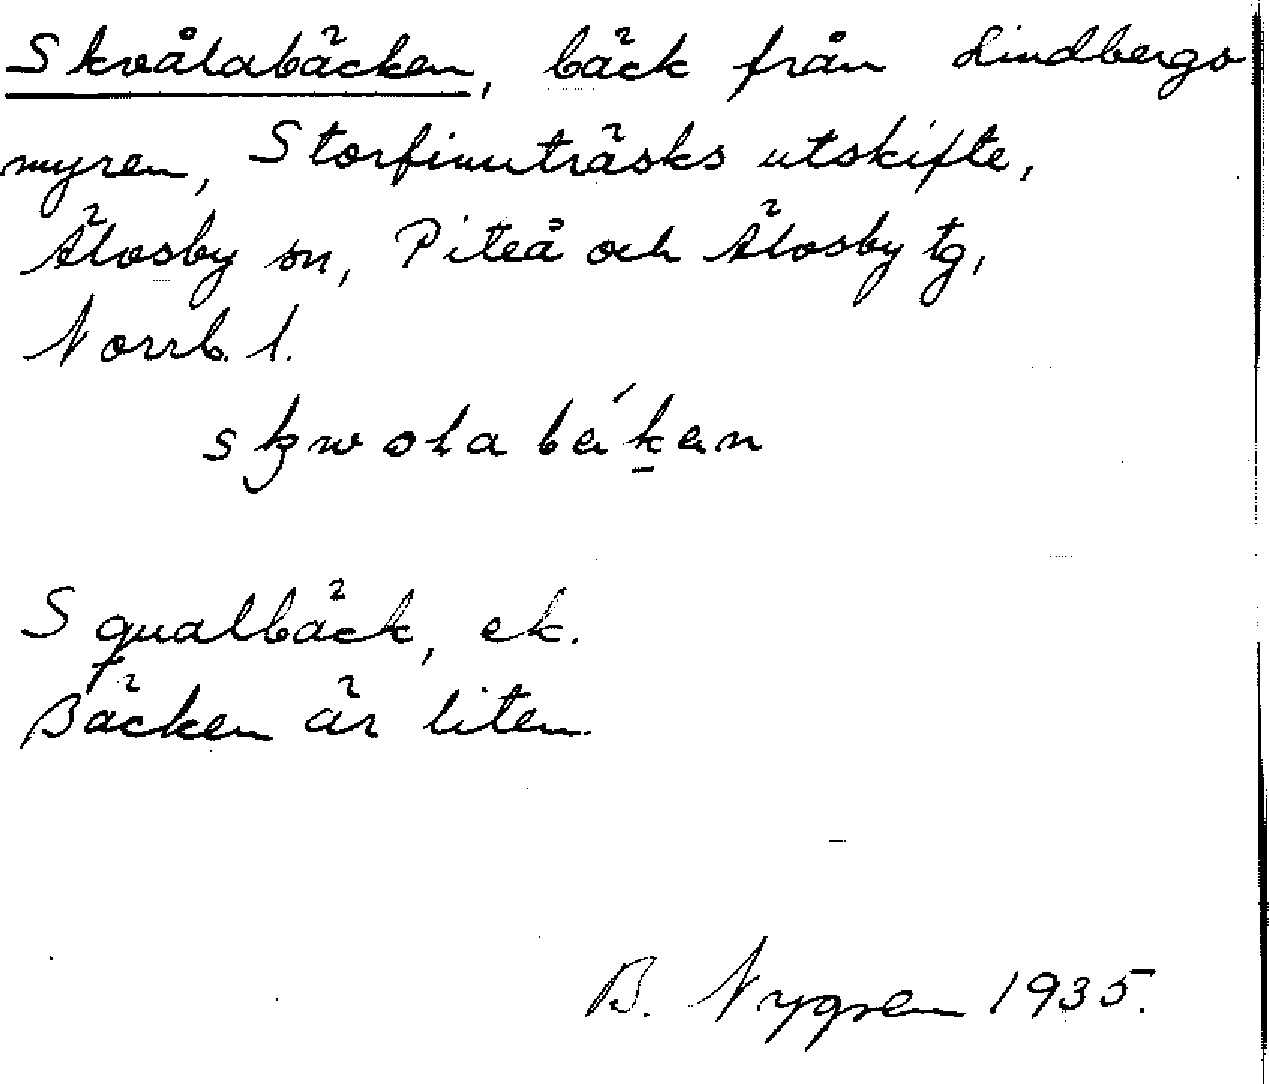 Skvålabäcken, bäck från Lindbergs
myren, Storfinnträsks utskifte,
Älvsby sn, Piteå och Älvsby tg,
Norrb. l.
Squalbäck, ek.
Bäcken är liten.
B. Nygren 1935.